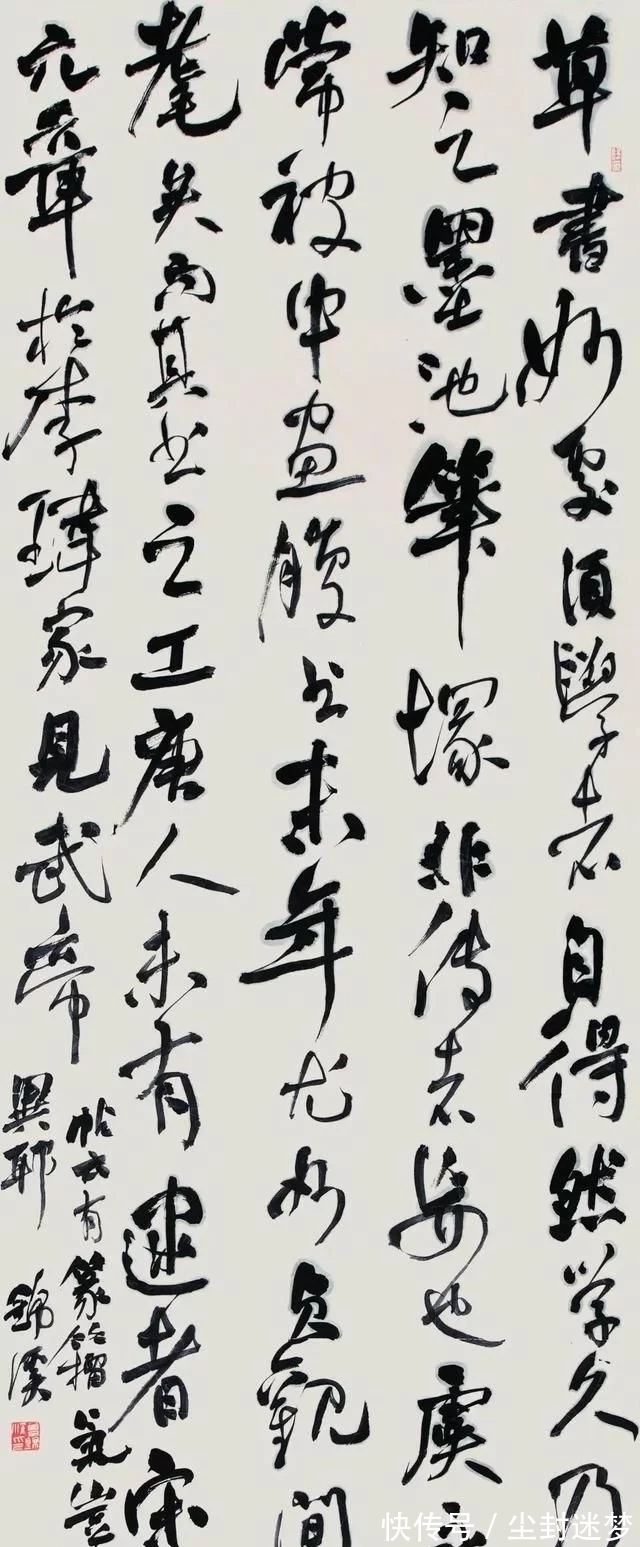 草書妙處須學者自得然學久乃
知之墨池筆塚非傳者妄也虞
常被中畫腹書末年尤妙貞觀間
耄矣而其書之工唐人未有逮者宋
元章於李瑋家見武帝
帖云有篆籀氣豈
異耶 錦溪
快传号 / 尘封迷梦